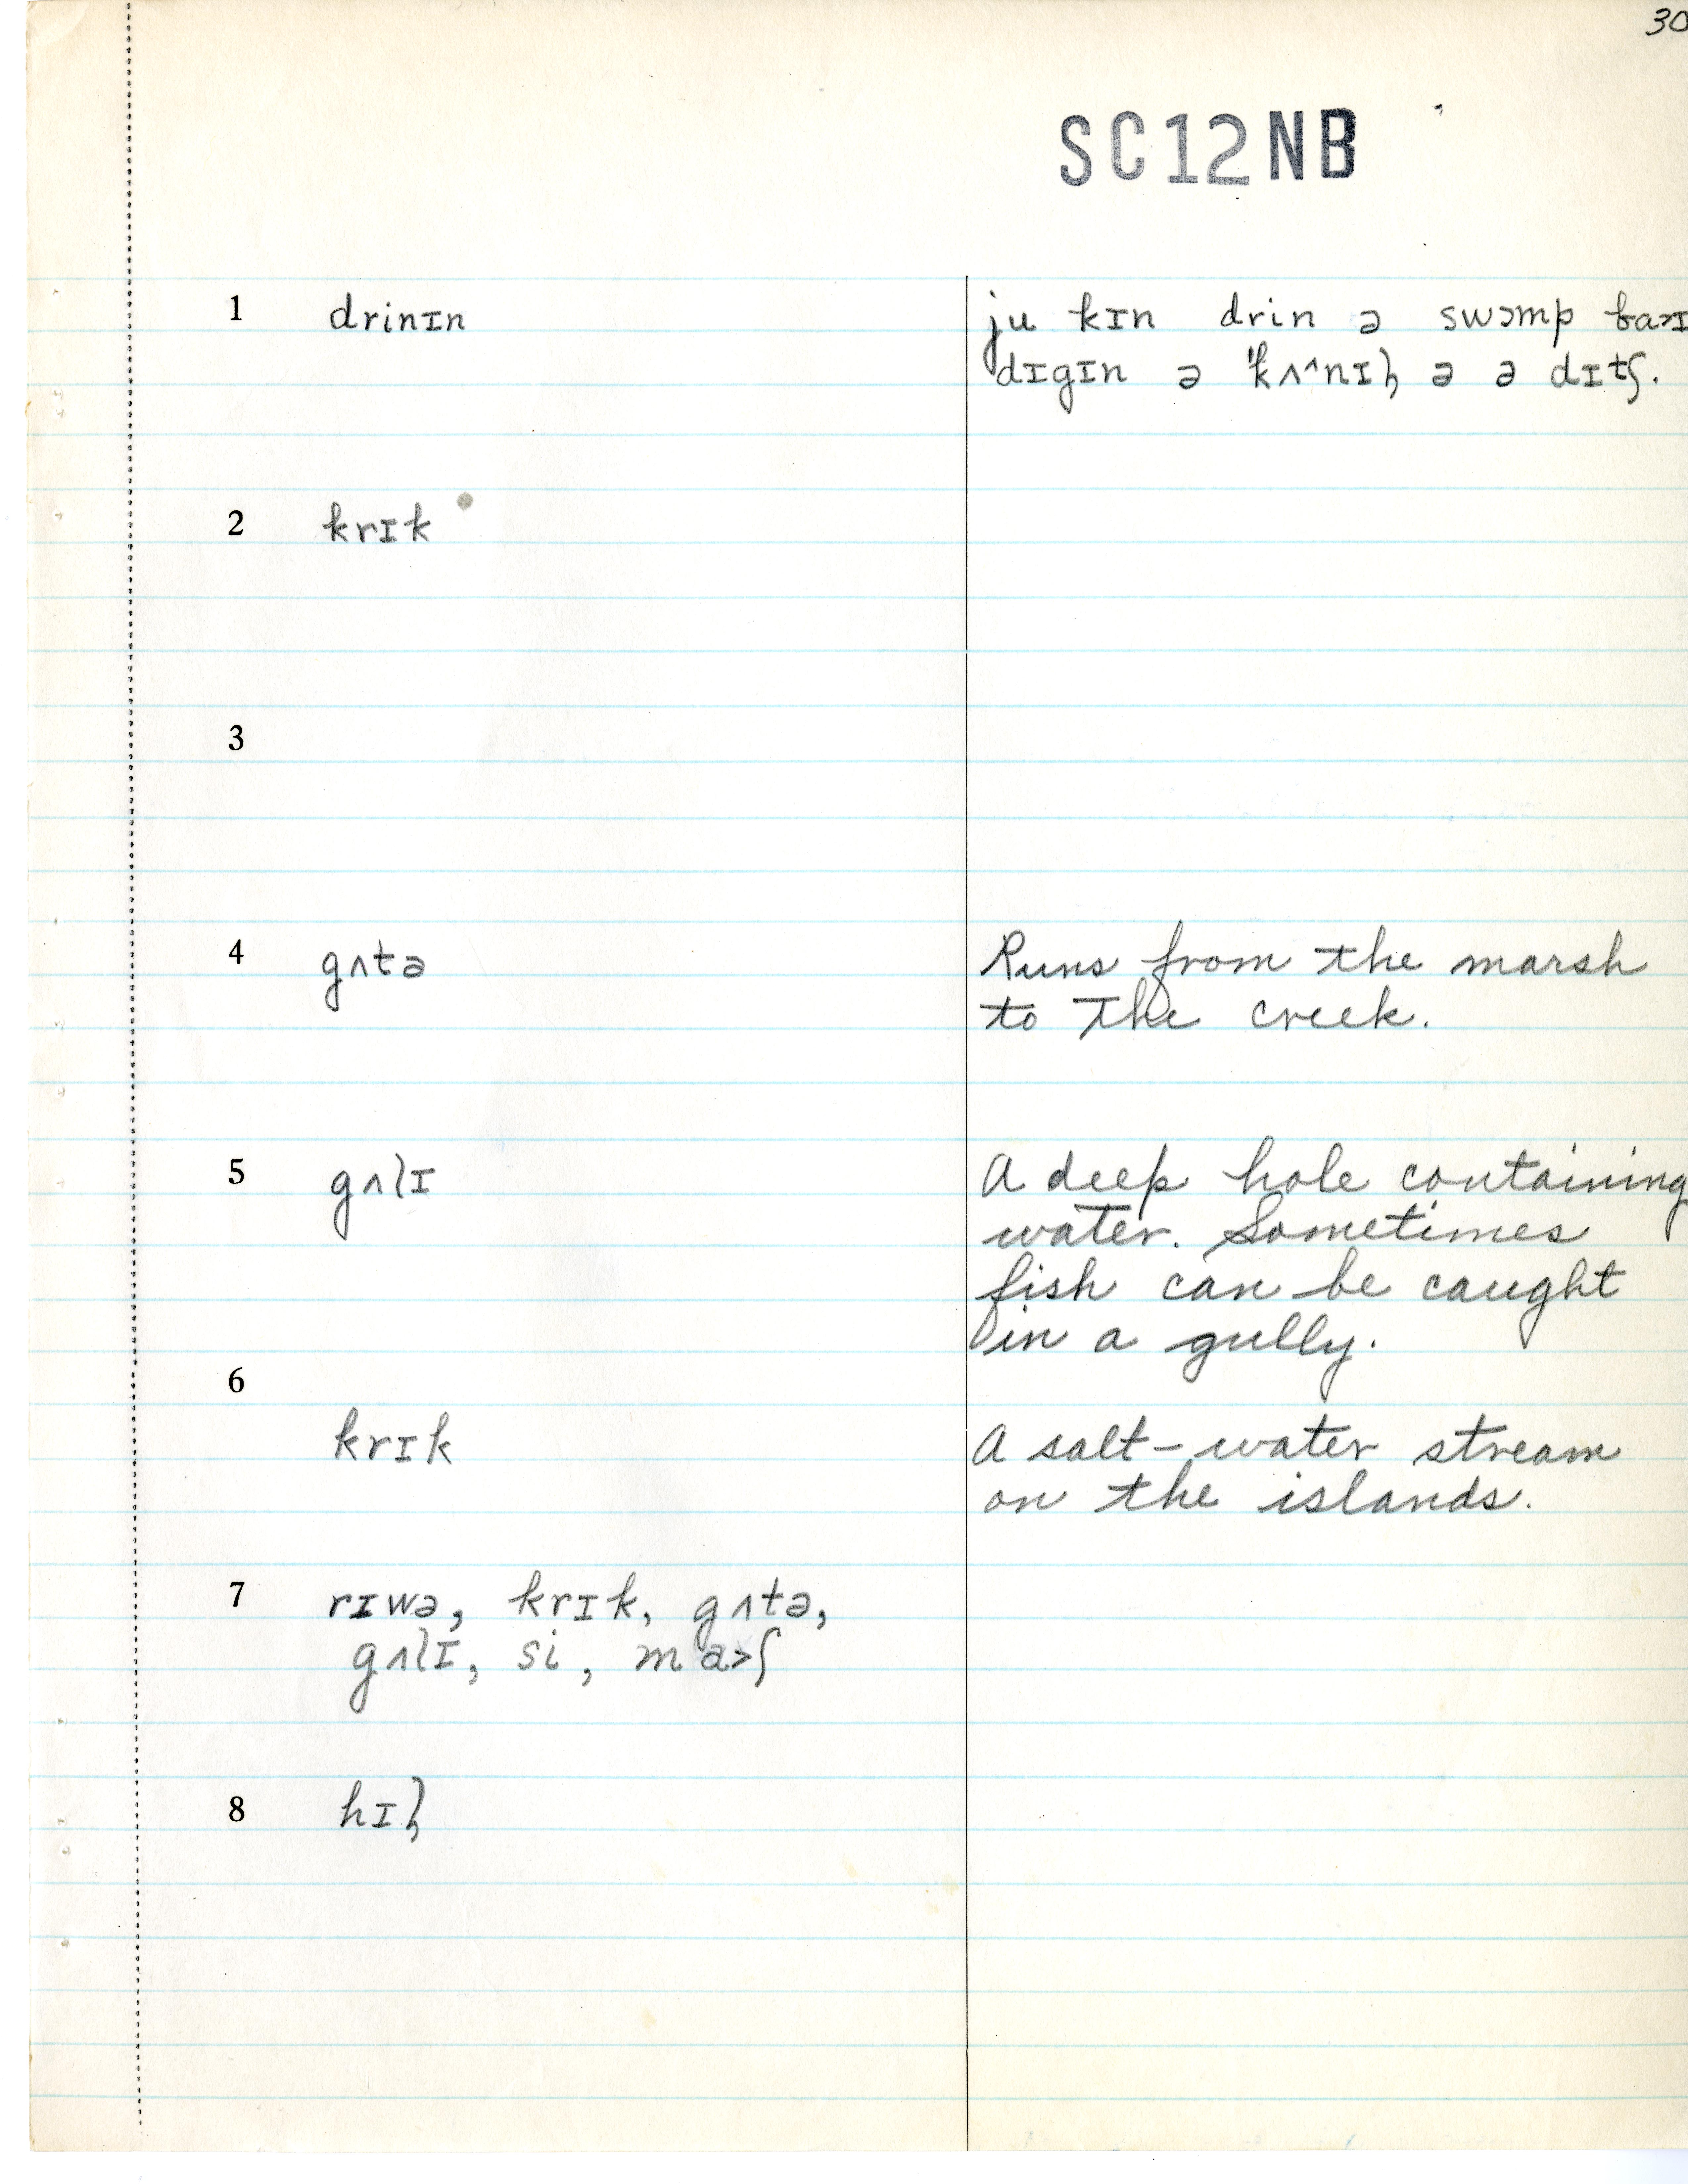 30
SC12NB
1 drinɪn
ju kɪn drin ə swɔmp ba>ɪ
dɪgɪn ə 'kʌ^nɪɫ ə ə dɪtʃ.
2 krɪk
3
4 gʌtə
Runs from the marsh
to the creek.
5 gʌlɪ
A deep hole containing
water. Sometimes
fish can be caught
in a gully.
6
krɪk
A salt-water stream
on the islands.
7 rɪwə, krɪk, gʌtə,
gʌlɪ, si, ma>ʃ
8 hɪɫ